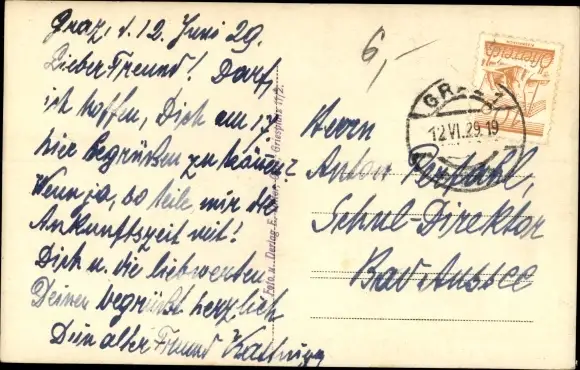 Graz, d. 12. Juni 29.
Lieber Freund! Darf
ich hoffen, Dich am 17.
hier begrüßen zu können?
Wenn ja, so teile mir die
Ankunftszeit mit!
Dich u. die liebwerten
Deinen begrüßt herzlich
Dein alter Freund
6,-
Foto u. Verlag Griesplatz 11/2.
Österreich
GRAZ
12.VI.29.19
Herrn
Anton
Schul-Direktor
Bad Aussee